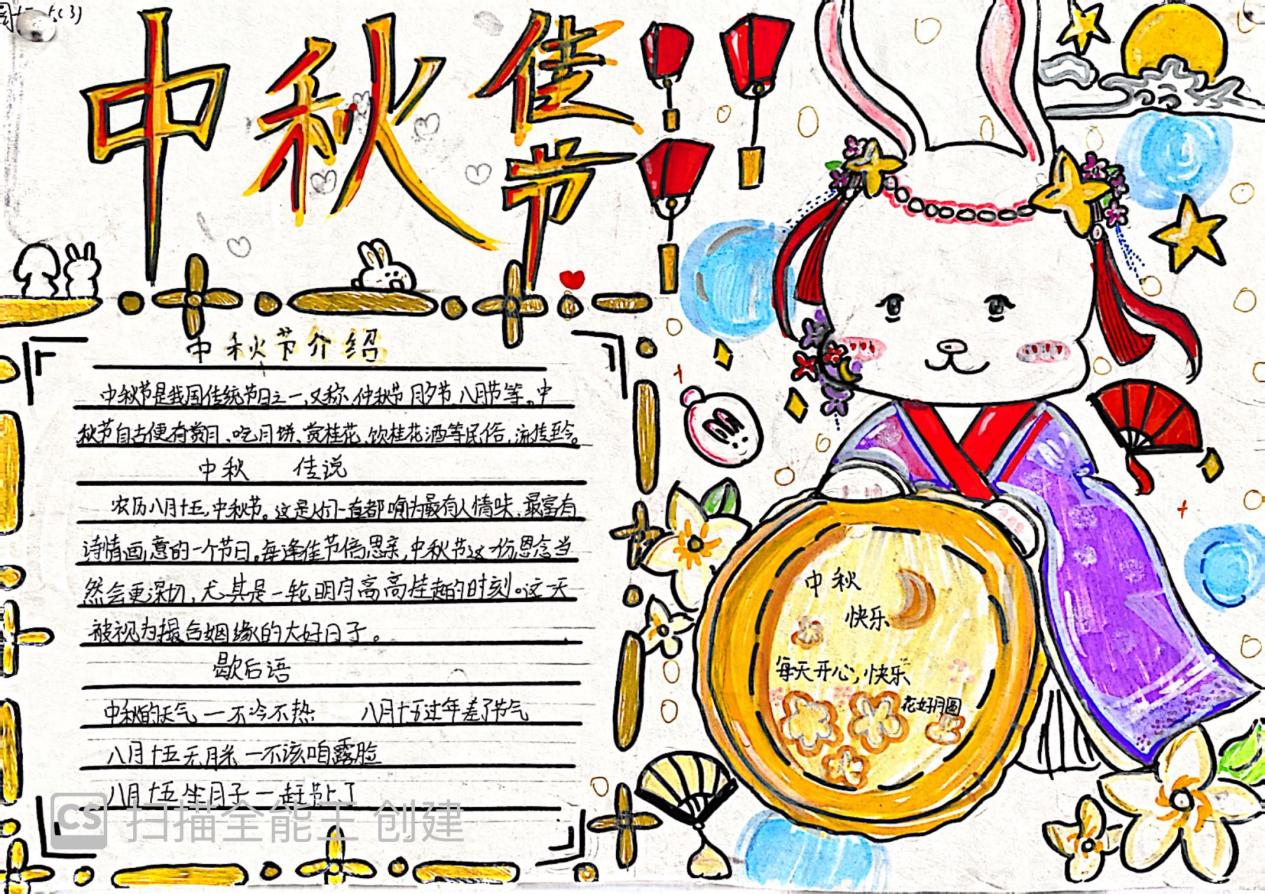 中秋佳节
中秋节介绍
中秋节是我国传统节日之一,又称仲秋节 月夕节 八月节等。中
秋节自古便有赏月、吃月饼、赏桂花、饮桂花酒等民俗,流传至今。
中秋 佳说
农历八月十五,中秋节。这是人们一直都喻为最有人情味、最富有
诗情画意的一个节日。每逢佳节倍思亲,中秋节这一份思念当
然会更深切,尤其是一轮明月高高挂起的时刻。这天
被视为撮合姻缘的大好日子。
歇后语
中秋的天气一不冷不热 八月十五过年差了节气
八月十五无月光一不该咱露脸
八月十五生月子一赶节上了
中秋
快乐
每天开心,快乐
花好月圆
CS 扫描全能王 创建